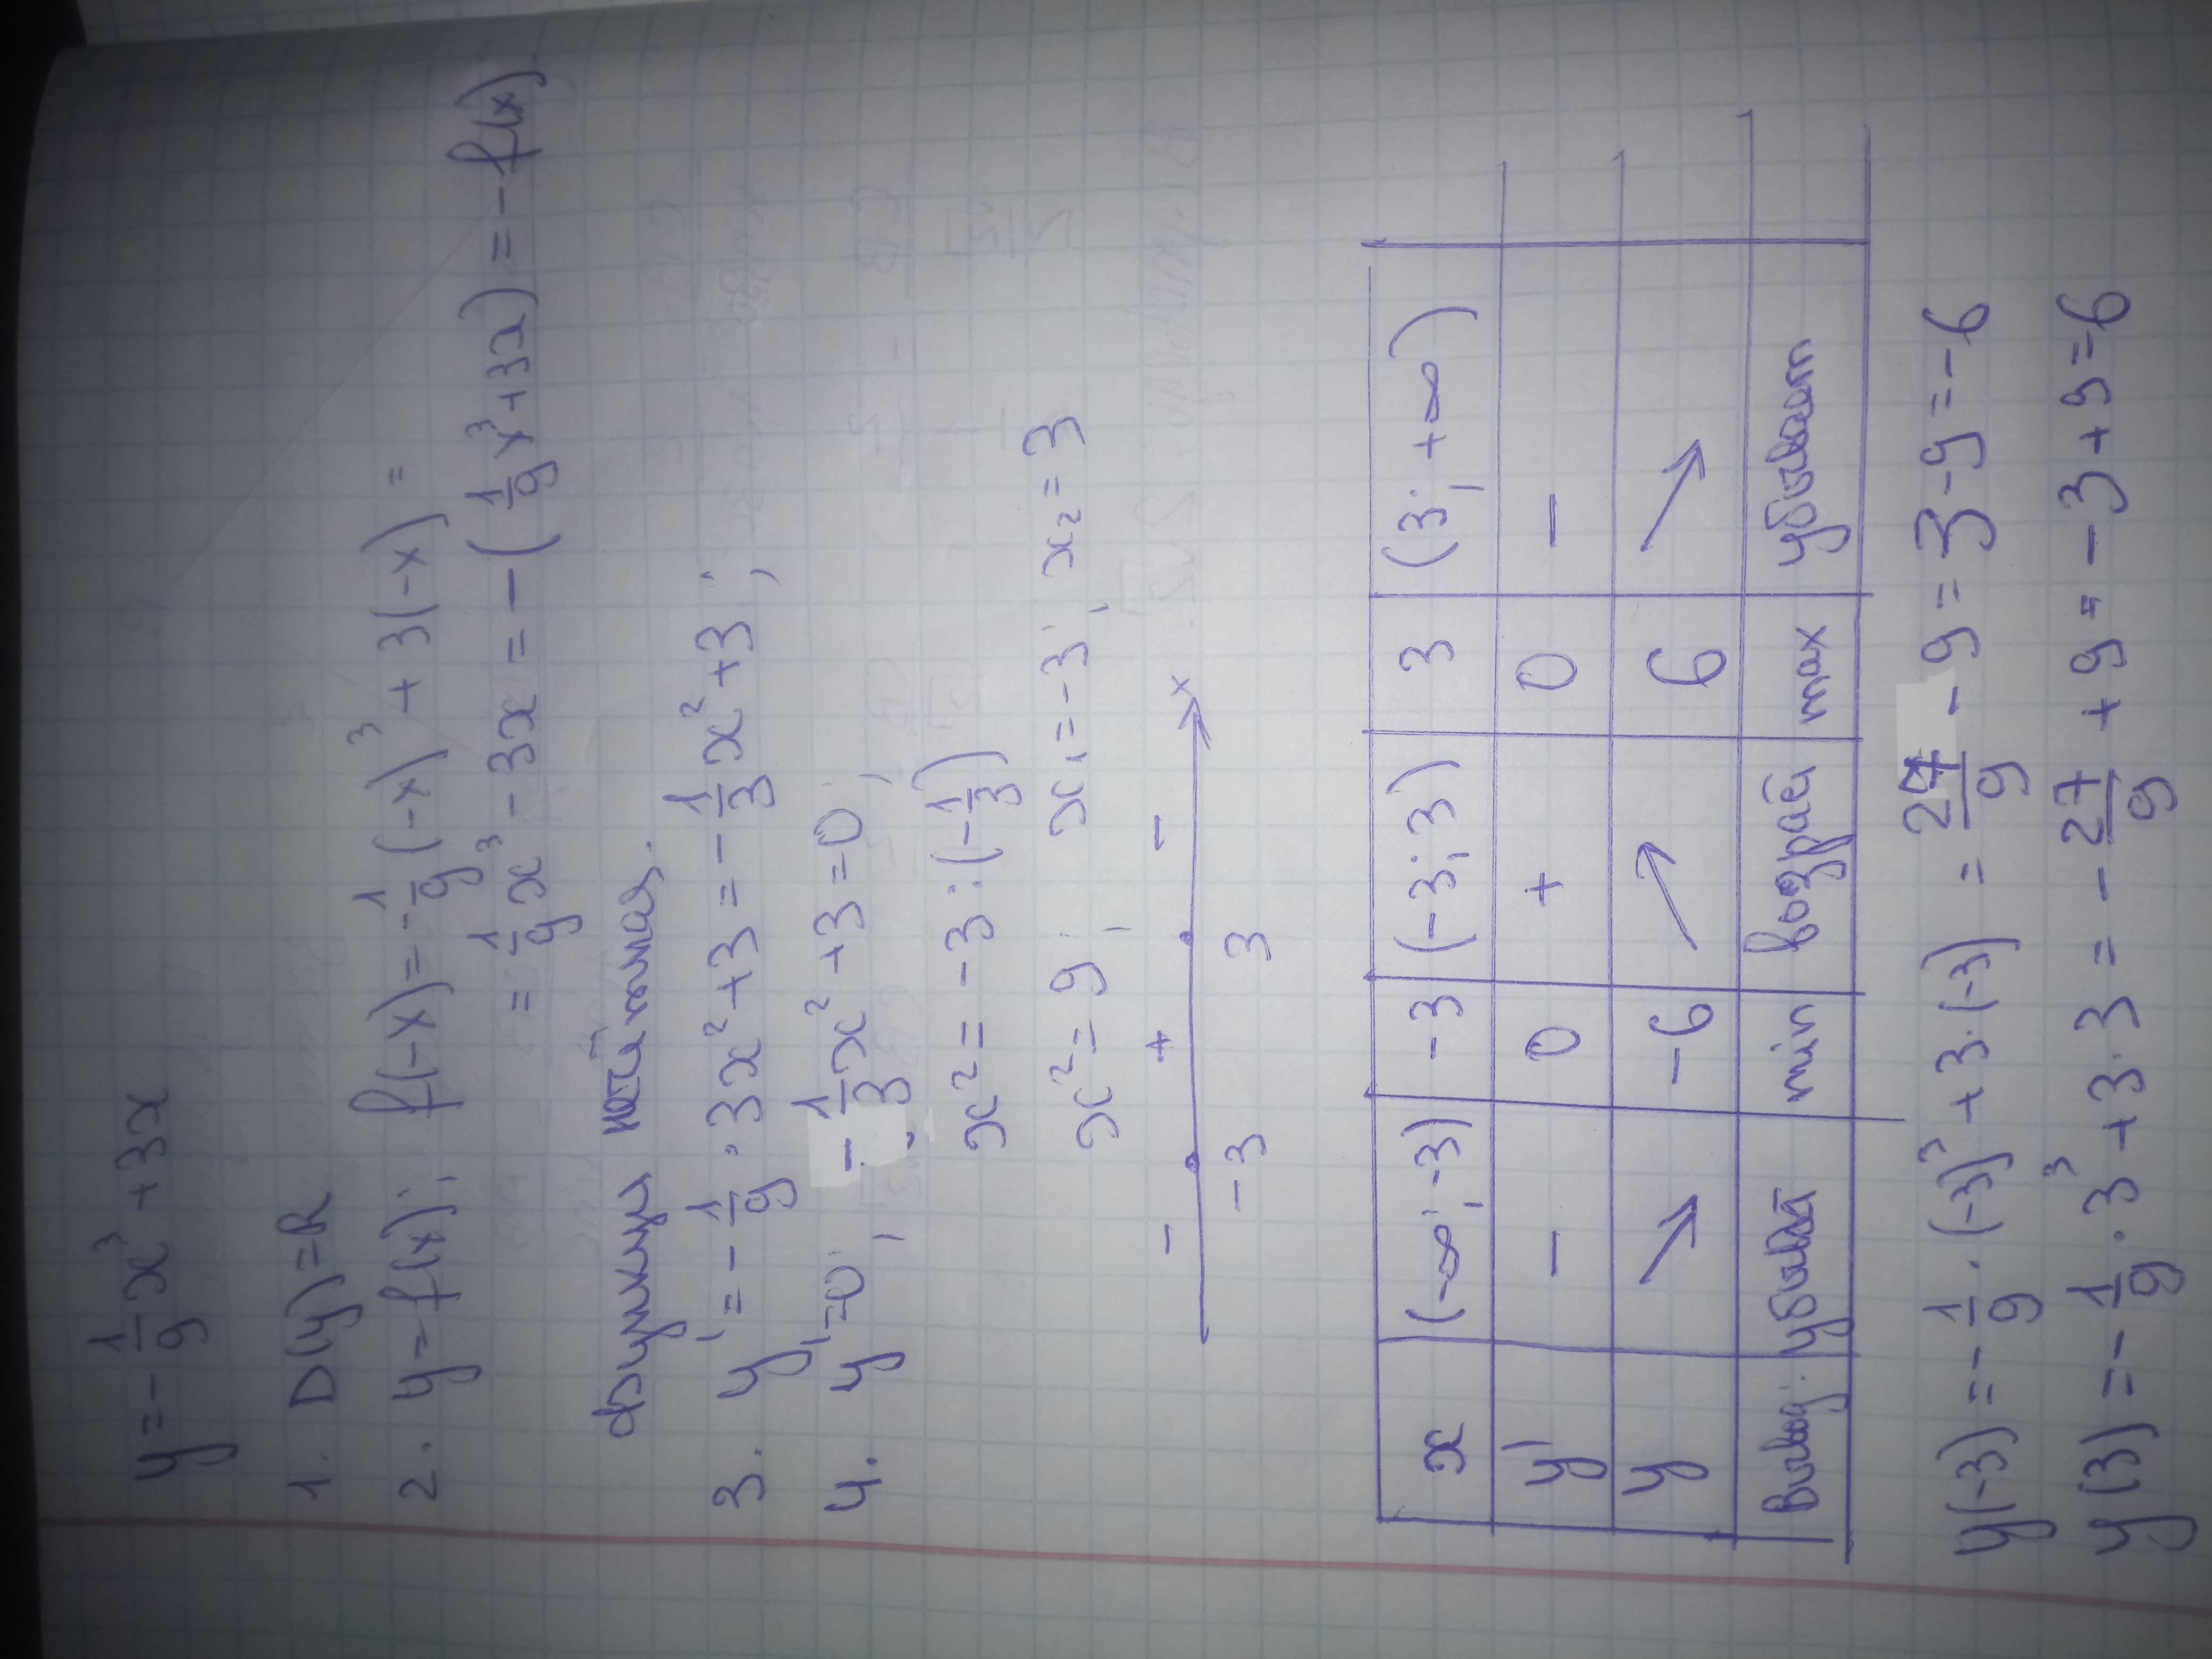 y = -1/9 x³ + 3x
1. D(y) = R
2. y = f(x); f(-x) = -1/9 (-x)³ + 3(-x) =
= 1/9 x³ - 3x = -(1/9 x³ + 3x) = -f(x).
функция
3. y' = -1/9 · 3x² + 3 = -1/3 x² + 3;
4. y' = 0; -1/3 x² + 3 = 0;
x² = -3 : (-1/3)
x² = 9; x₁ = -3; x₂ = 3
- + - x
-3 3
x (-∞; -3) -3 (-3; 3) 3 (3; +∞)
y' - 0 + 0 -
y ↘ -6 ↗ 6 ↘
Вывод: убывай min возрай max убывает
y(-3) = -1/9 · (-3)³ + 3 · (-3) = 27/9 - 9 = 3 - 9 = -6
y(3) = -1/9 · 3³ + 3 · 3 = -27/9 + 9 = -3 + 9 = 6